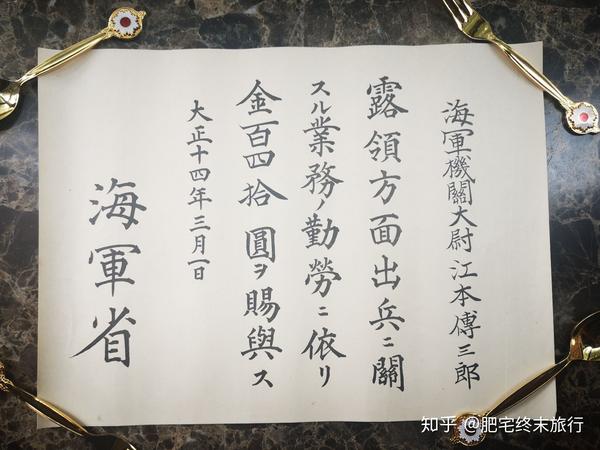 海軍機關大尉 江本傳三郎
露領方面出兵ニ關
スル業務ノ勤勞ニ依リ
金百四拾圓ヲ賜與ス
大正十四年三月一日
海軍省
知乎 @肥宅终末旅行